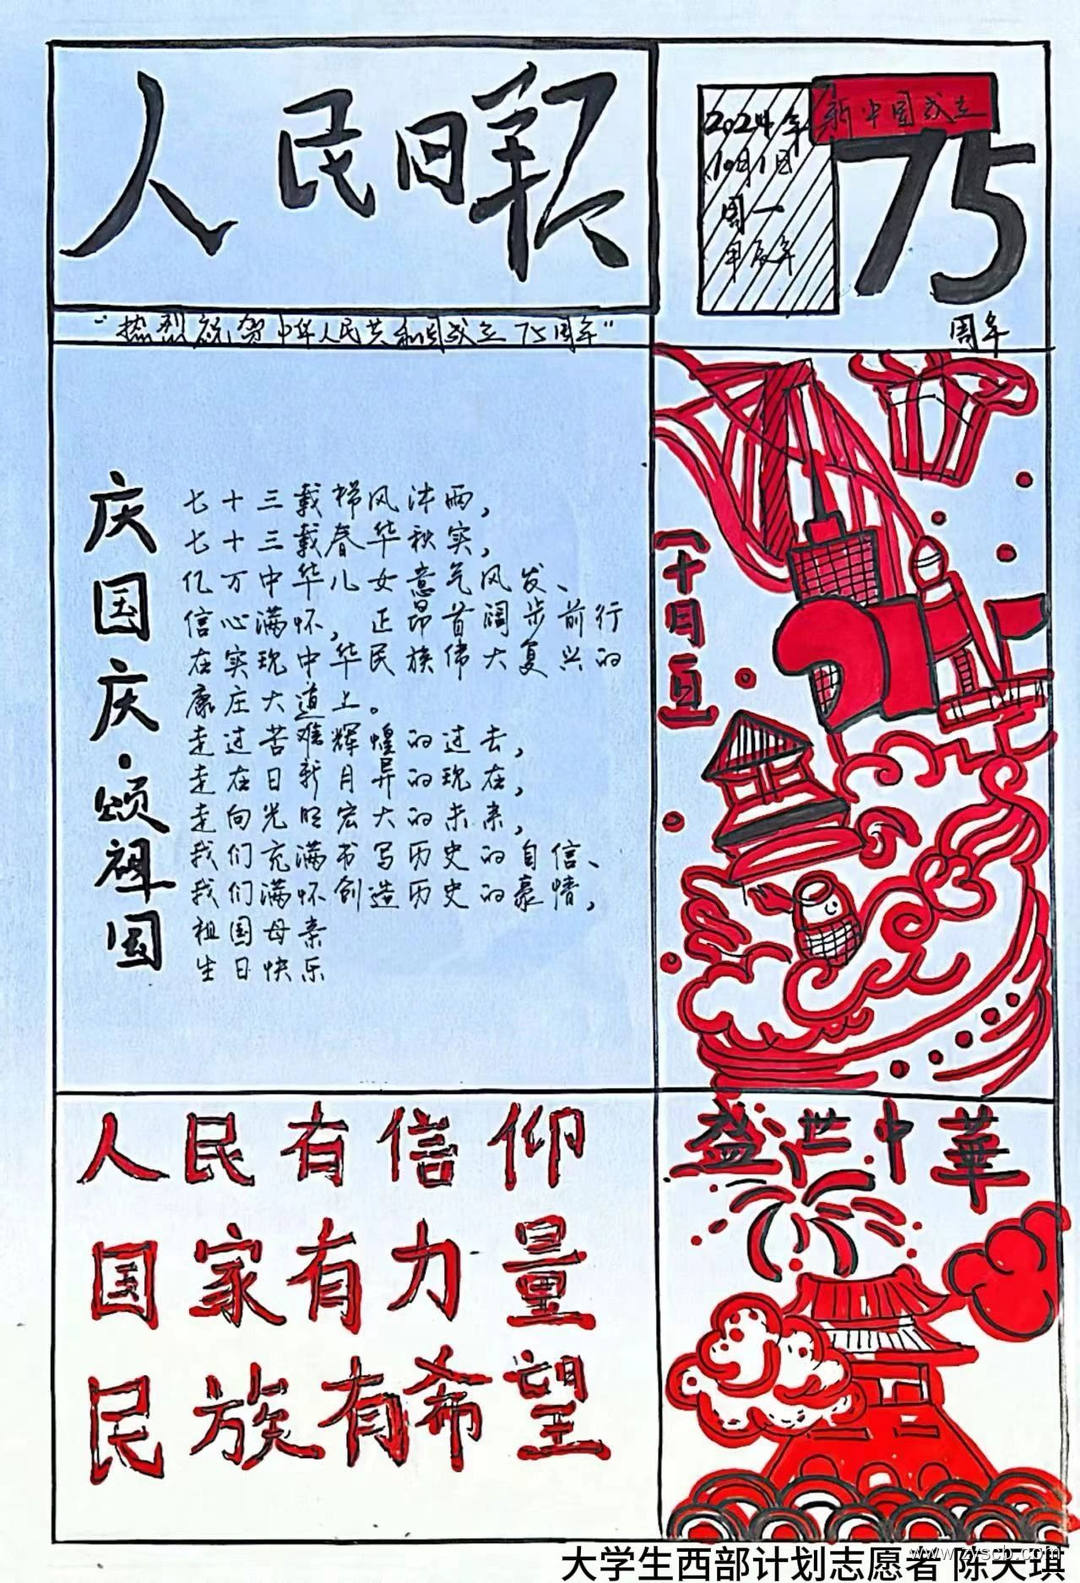 人民日报
2024年
10月1日
周一
甲辰年
新中国成立
75
周年
"热烈祝贺中华人民共和国成立75周年"
庆国庆·颂祖国
七十三载栉风沐雨，
七十三载春华秋实，
亿万中华儿女意气风发、
信心满怀，正昂首阔步前行
在实现中华民族伟大复兴的
康庄大道上。
走过苦难辉煌的过去，
走在日新月异的现在，
走向光明宏大的未来，
我们充满书写历史的自信、
我们满怀创造历史的豪情，
祖国母亲
生日快乐
【十月一日】
人民有信仰
国家有力量
民族有希望
盛世中華
大学生西部计划志愿者 陈天琪
www.zyscb.com